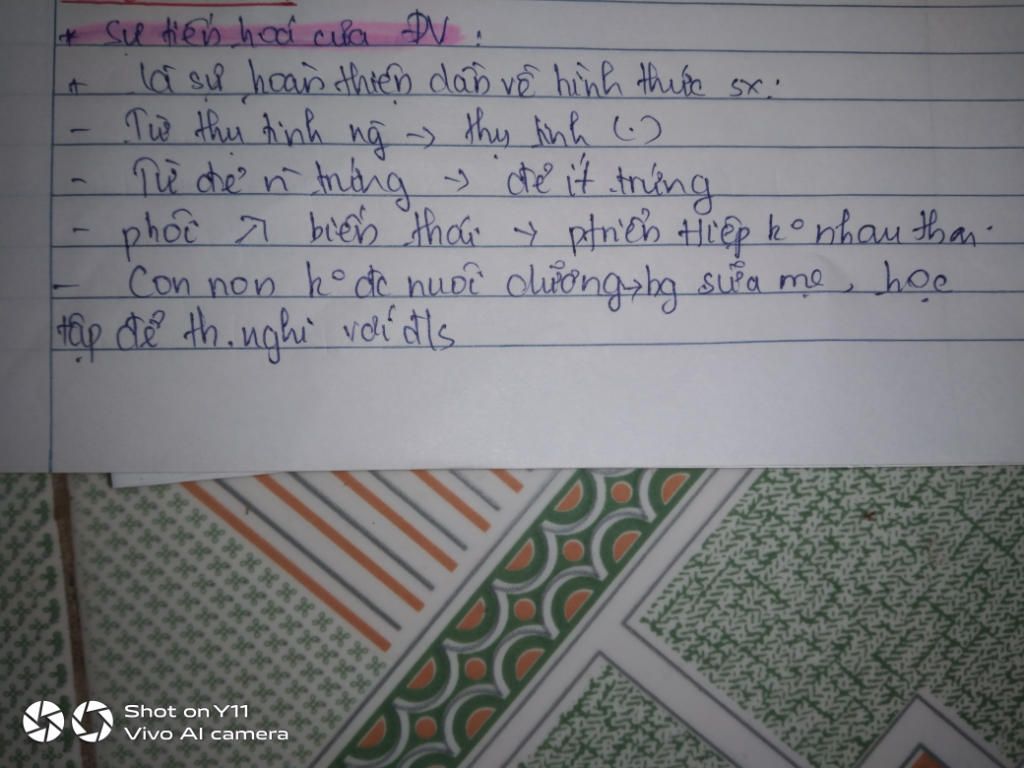 * Sự tiến hoá của ĐV :
+ là sự hoàn thiện dần về hình thức sx:
- Từ thụ tinh ng → thụ tinh (.)
- Từ đẻ n trứng → đẻ ít trứng
- phôi ↗ biến thái → ptriển tiếp ko nhau thai.
- Con non ko đc nuôi dưỡng → bg sữa mẹ, học
tập để th.nghi với đ/s
Shot on Y11
Vivo AI camera